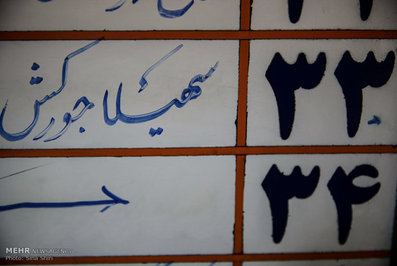 ۳۳ سهیلا جورکش
۳۴
MEHR NEWSAGENCY
Photo: Sina Shiri